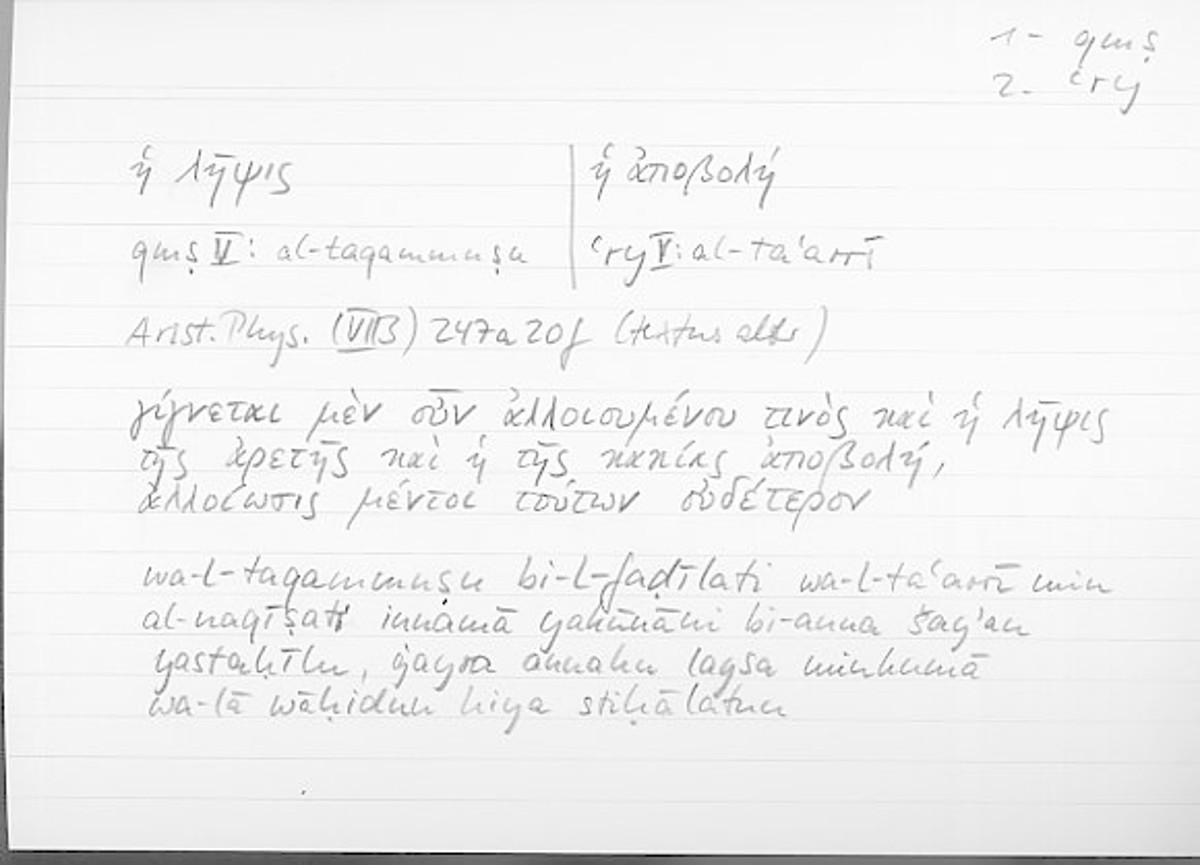 1- qmṣ
2. ʿry
ἡ λῆψις | ἡ ἀποβολή
qmṣ V: al-taqammuṣu | ʿry V: al-taʿarrī
Arist. Phys. (VII 3) 247a20f (textus alter)
γίγνεται μὲν οὖν ἀλλοιουμένου τινὸς καὶ ἡ λῆψις
τῆς ἀρετῆς καὶ ἡ τῆς κακίας ἀποβολή,
ἀλλοίωσις μέντοι τούτων οὐδέτερον
wa-l-taqammuṣu bi-l-faḍīlati wa-l-taʿarrī min
al-naqīṣati innamā yakūnāni bi-anna šayʾan
yastaḥīlu, ġayra annahu laysa minhumā
wa-lā wāḥidun hiya stiḥālatun